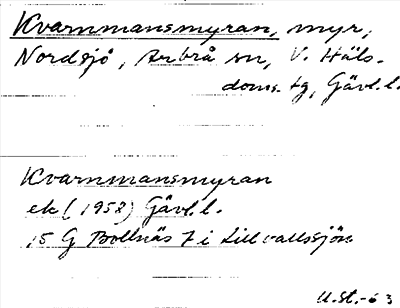 Kvarnmansmyran, myr,
Nordsjö, Arbrå sn, V. Häls.
doms. tg, Gävl.l.
Kvarnmansmyran
ek (1958) Gävl.l.
15 G Bollnäs 7 i Lillvallssjön
U.St.-63